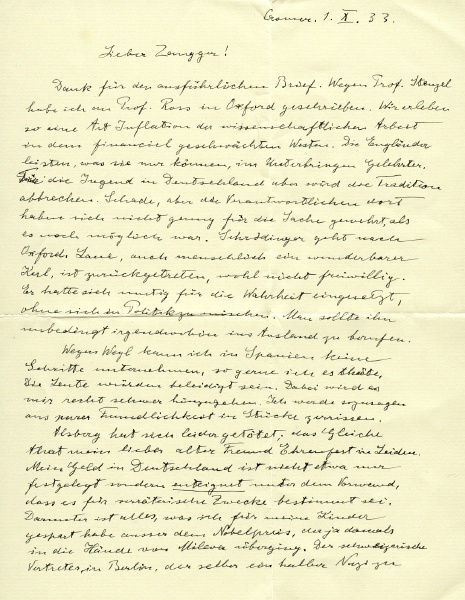 Cromer. 1. X. 33.
Lieber Zangger!
Dank für den ausführlichen Brief. Wegen Prof. Stenzel
habe ich an Prof. Ross in Oxford geschrieben. Wir erleben
so eine Art Inflation der wissenschaftlichen Arbeit
in dem finanziel geschwächten Westen. Die Engländer
leisten, was sie nur können, im Unterbringen Gelehrter.
Für die Jugend in Deutschland aber wird die Tradition
abbrechen. Schade, aber die Verantwortlichen dort
haben sich nicht genug für die Sache gewehrt, als
es noch möglich war. Schrödinger geht nach
Oxford. Laue, auch menschlich ein wunderbarer
Kerl, ist zurückgetreten, wohl nicht freiwillig.
Er hatte sich mutig für die Wahrheit eingesetzt,
ohne sich in Politik zu mischen. Man sollte ihn
unbedingt irgendwohin ins Ausland zu berufen.
Wegen Weyl kann ich in Spanien keine
Schritte unternehmen, so gerne ich es thäte.
Die Leute würden beleidigt sein. Dabei wird es
mir recht schwer hinzugehen. Ich werde sozusagen
aus purer Freundlichkeit in Stücke zerrissen.
Alsberg hat sich leider getötet; das Gleiche
that mein lieber alter Freund Ehrenfest in Leiden.
Mein Geld in Deutschland ist nicht etwa nur
festgelegt sondern enteignet unter dem Vorwand,
dass es für verräterische Zwecke bestimmt sei.
Darunter ist alles, was ich für meine Kinder
gespart habe ausser dem Nobelpreis, der ja damals
in die Hände von Mileva überging. Der schweizerische
Vertreter in Berlin, der selber ein halber Nazi zu